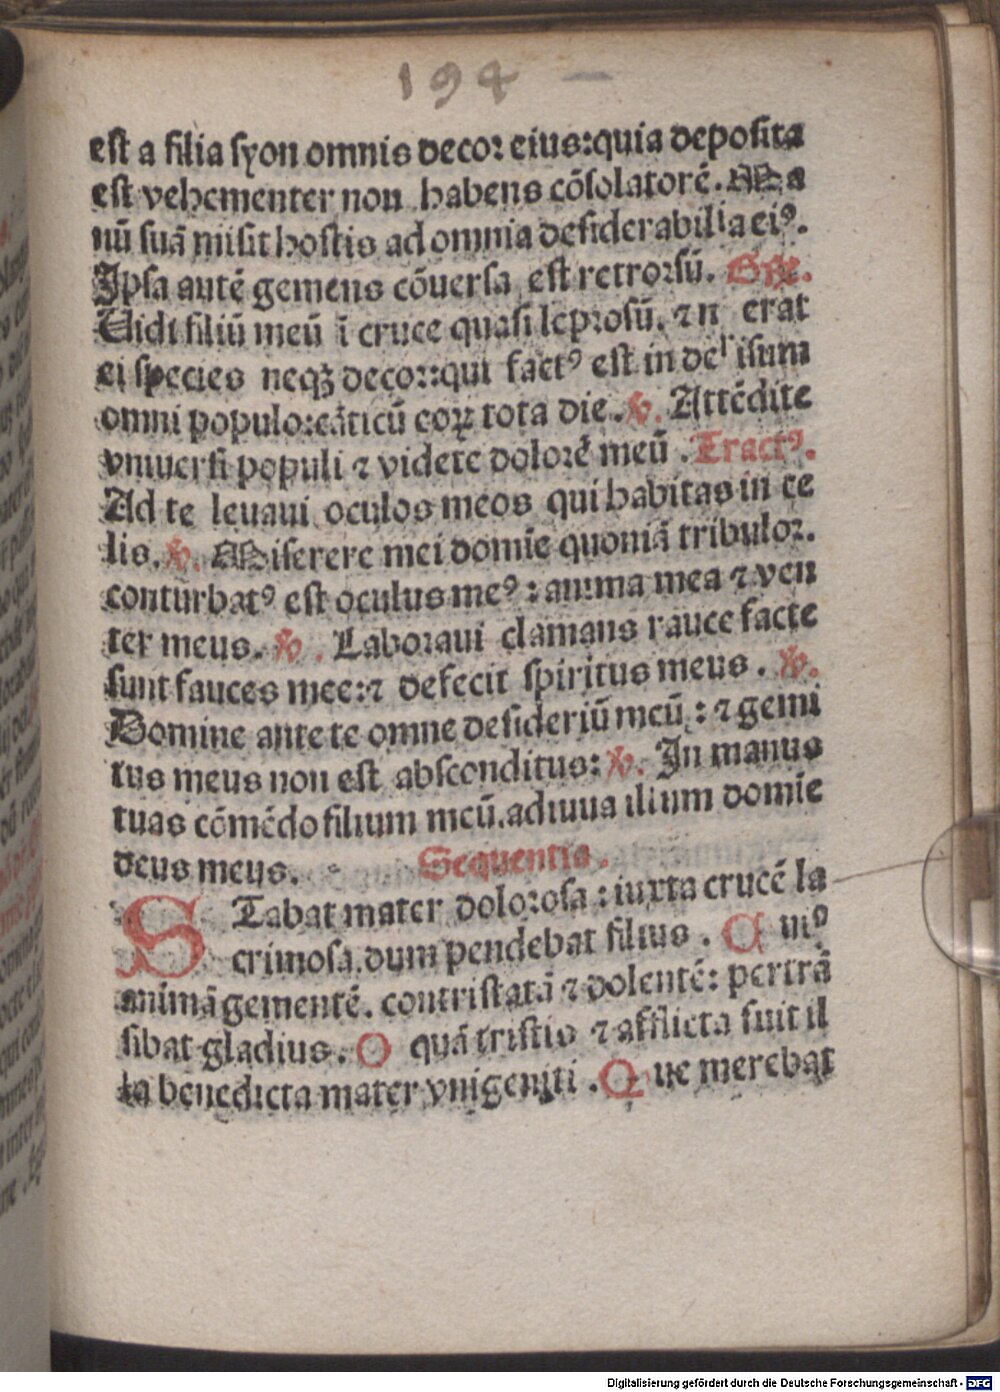 194 —
est a filia syon omnis decor eius:quia deposita
est vehementer non habens cōsolatorē. Ma
nū suā misit hostis ad omnia desiderabilia eiꝰ.
Ipsa autē gemens cōuersa est retrorsū. Gͬle.
Uidi filiū meū ī cruce quasi leprosū. ⁊ n erat
ei species neqꝫ decor:qui factꝰ est in de isum
omni populo:cāticū eoꝝ tota die. ℣. Attēdite
vniuersi populi ⁊ videte dolorē meū . Tractꝰ.
Ad te leuaui oculos meos qui habitas in ce
lis. ℣. Miserere mei domīe quoniā tribulor.
conturbatꝰ est oculus meꝰ : anima mea ⁊ ven
ter meus. ℣. Laboraui clamans rauce facte
sunt fauces mee:⁊ defecit spiritus meus . ℣.
Domine ante te omne desideriū meū : ⁊ gemi
tus meus non est absconditus: ℣. In manus
tuas cōmēdo filium meū.adiuua illum domīe
deus meus. Sequentia.
STabat mater dolorosa : iuxta crucē la
crimosa.dum pendebat filius . C uiꝰ
animā gementē. contristatā ⁊ dolentē: pertrā
sibat gladius. O quā tristis ⁊ afflicta fuit il
la benedicta mater vnigeniti . Q ue merebat
Digitalisierung gefördert durch die Deutsche Forschungsgemeinschaft - DFG